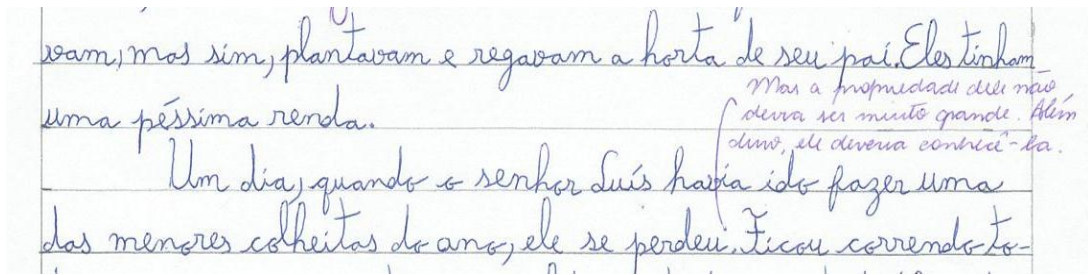 vam, mas sim, plantavam e regavam a horta de seu pai. Eles tinham
uma péssima renda.
Mas a propriedade dele não
devia ser muito grande. Além
disso, ele deveria conhecê-la.
Um dia, quando o senhor Luís havia ido fazer uma
das menores colheitas do ano, ele se perdeu. Ficou correndo to-